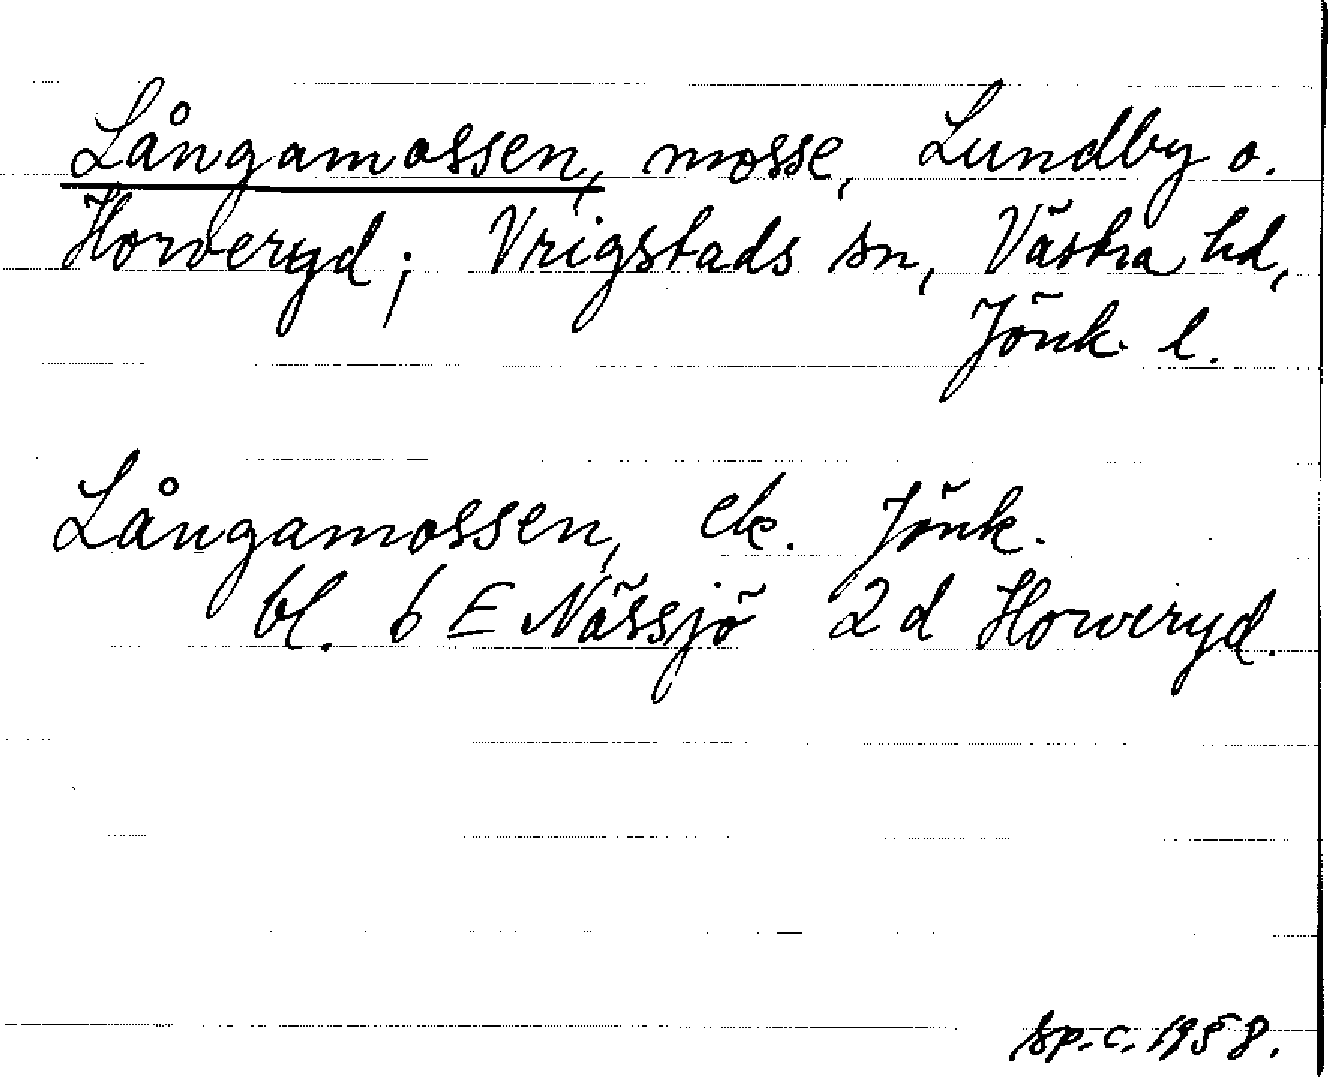 Långamossen, mosse, Lundby o.
Horveryd; Vrigstads sn, Västra hd,
Jönk. l.
Långamossen, ek. Jönk.
bl. 6 E Nässjö 2d Horveryd.
sp.c. 1958.